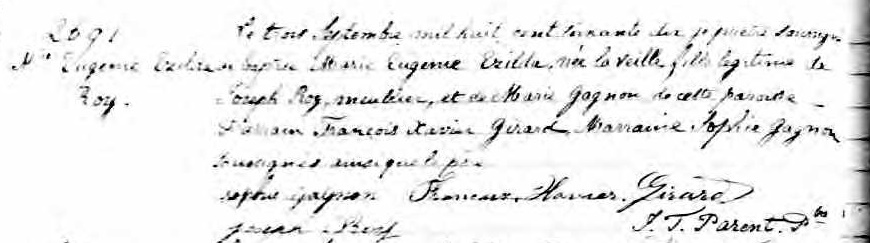 2691
Le trois Septembre mil huit cent soixante dix je prêtre soussigné
Mie Eugenie Exilda ai baptisé Marie Eugenie Exilda, née la veille, fille legitime de
Roy. Joseph Roy, meublier, et de Marie Gagnon de cette paroisse
Parrain François Xavier Girard, Marraine Sophie Gagnon
soussignés ainsi que le père
sophie gagnon Francois Xavier Girard
Joseph Roy J. T. Parent. Ptre